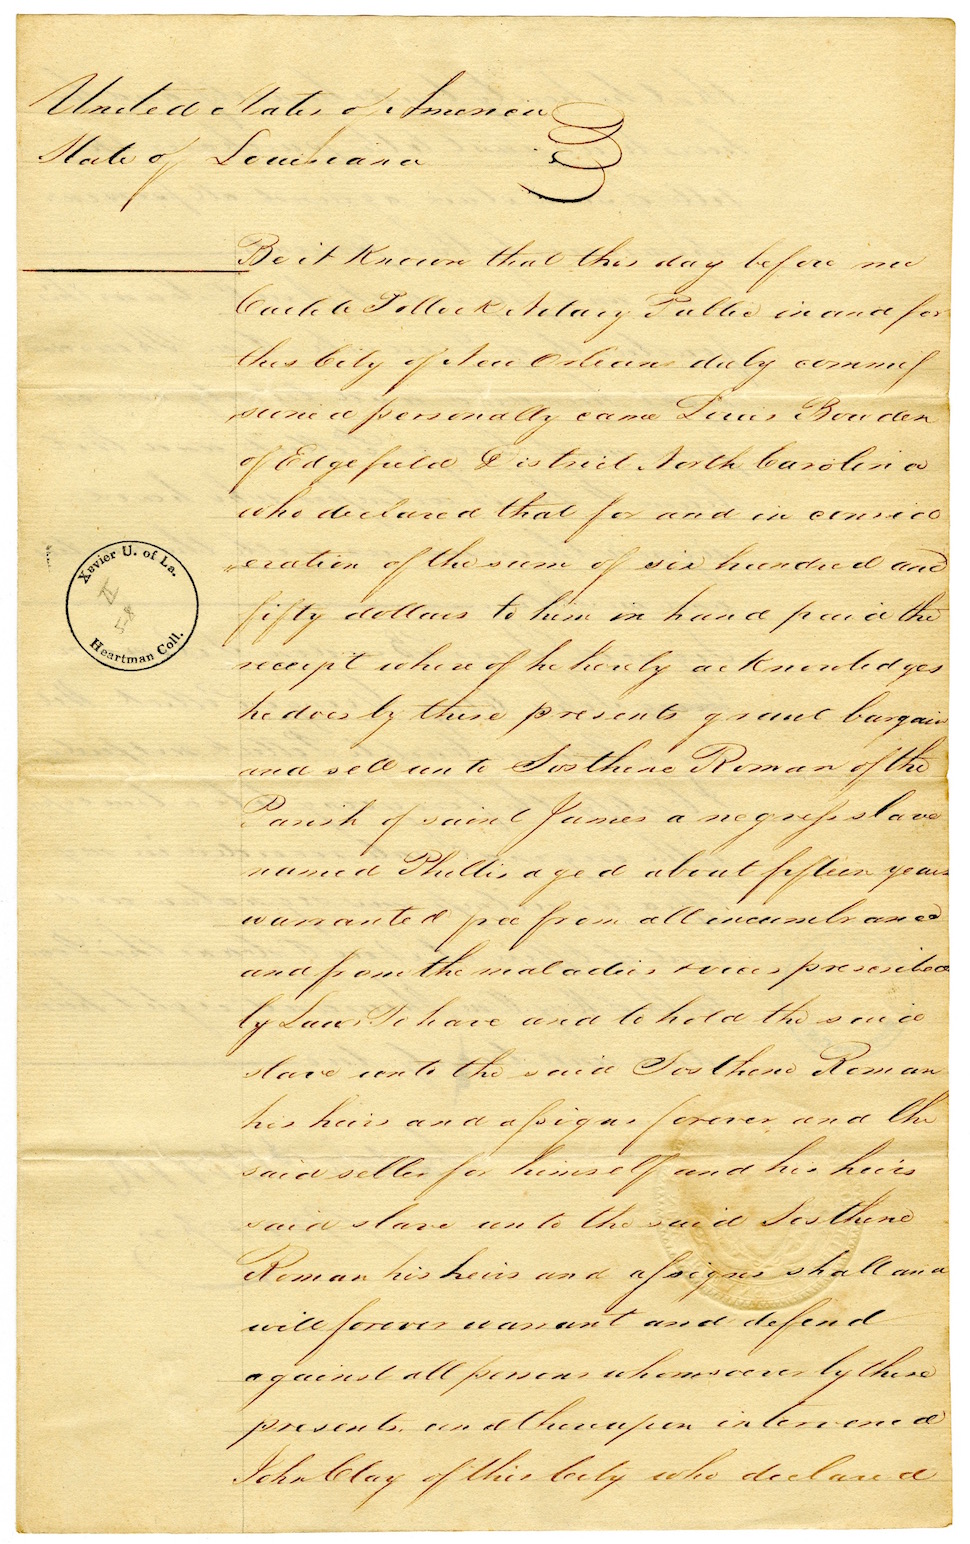 United States of America
State of Louisiana
Be it Known that this day before me
Carlile Pollock Notary Public in and for
this City of New Orleans duly commis
sioned personally came Louis Bowden
of Edgefield District North Carolina
who declared that for and in consid
eration of the sum of six hundred and
fifty dollars to him in hand paid the
receipt where of he hereby acknowledges
he does by these presents grant bargain
and sell unto Sosthene Roman of the
Parish of saint James a negress slave
named Phillis aged about fifteen years
warranted free from all incumbrance
and from the maladies & vices prescribed
by Law, To have and to hold the said
slave unto the said Sosthene Roman
his heirs and assigns forever and the
said seller for himself and his heirs
said slave unto the said Sosthene
Roman his heirs and assigns shall and
will forever warrant and defend
against all persons whomsoever by these
presents. and thereupon intervened
John Clay of this City who declared
Xavier U. of La.
II
58
Heartman Coll.